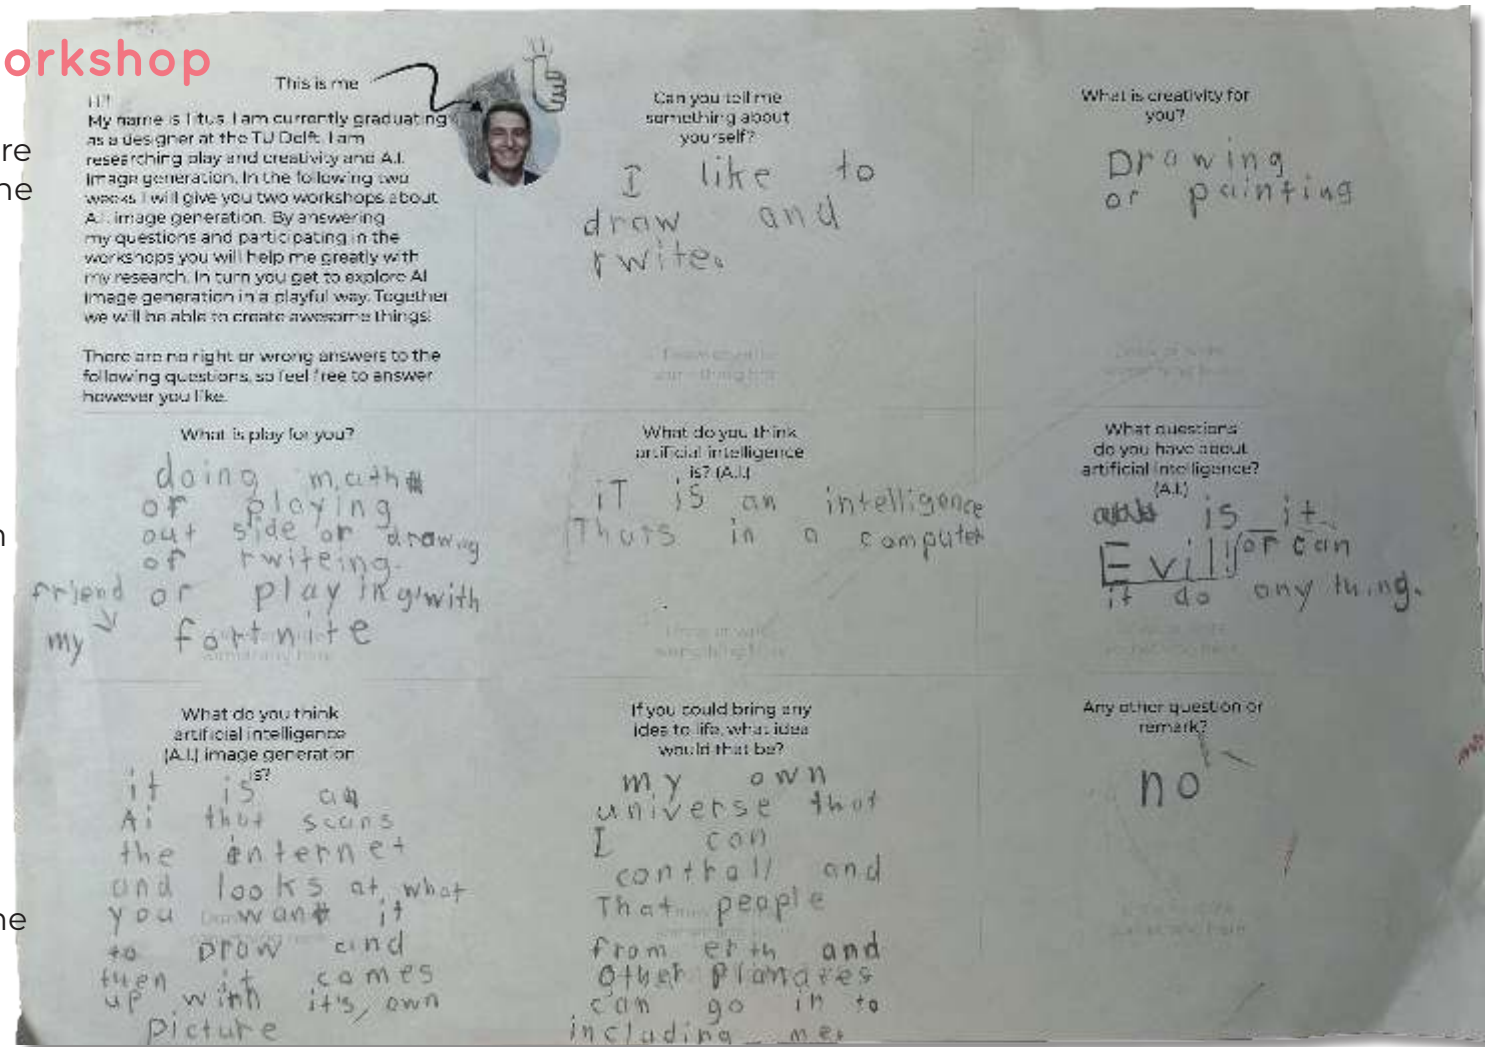 orkshop
re
ne
n
ne
This is me
Hi!
My name is Titus. I am currently graduating
as a designer at the TU Delft. I am
researching play and creativity and A.I.
image generation. In the following two
weeks I will give you two workshops about
A.I. image generation. By answering
my questions and participating in the
workshops you will help me greatly with
my research. In turn you get to explore AI
image generation in a playful way. Together
we will be able to create awesome things!
There are no right or wrong answers to the
following questions, so feel free to answer
however you like.
Can you tell me
something about
yourself?
I like to
draw and
rwite.
What is creativity for
you?
Drawing
or painting
What is play for you?
doing math
or playing
out side or drawing
or rwiteing.
or playing with
my friend
fortnite
What do you think
artificial intelligence
is? (A.I.)
iT is an intelligence
Thats in a computer
What questions
do you have about
artificial intelligence?
(A.I.)
is it
Evil or can
it do any thing.
What do you think
artificial intelligence
(A.I.) image generation
is?
it is an
Ai that scans
the internet
and looks at what
you want it
to Draw and
then it comes
up with it's own
Picture
If you could bring any
idea to life, what idea
would that be?
my own
universe that
I can
controll and
That people
from erth and
other planates
can go in to
including me.
Any other question or
remark?
no